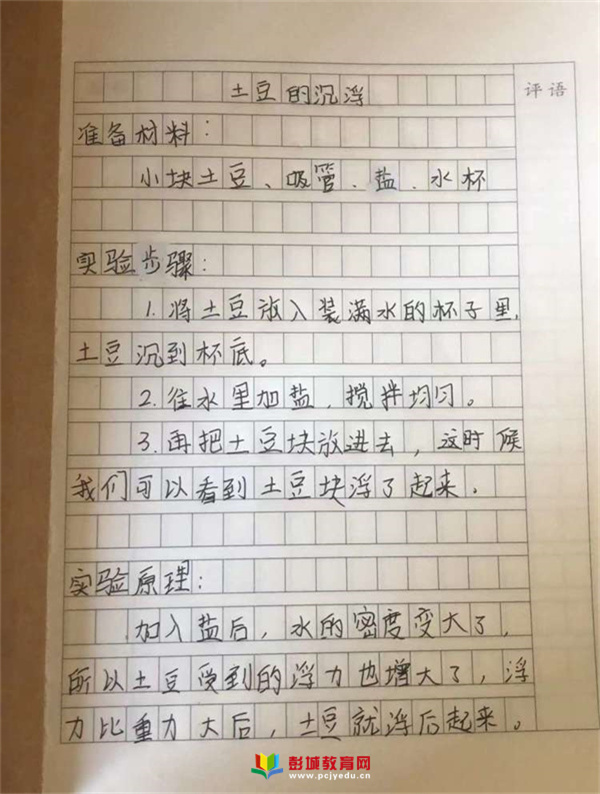 土豆的沉浮
评语
准备材料：
小块土豆、吸管、盐、水杯
实验步骤：
1.将土豆放入装满水的杯子里，
土豆沉到杯底。
2.往水里加盐，搅拌均匀。
3.再把土豆块放进去，这时候
我们可以看到土豆块浮了起来。
实验原理：
加入盐后，水的密度变大了，
所以土豆受到的浮力也增大了，浮
力比重力大后，土豆就浮后起来。
彭城教育网
www.pcjyedu.cn